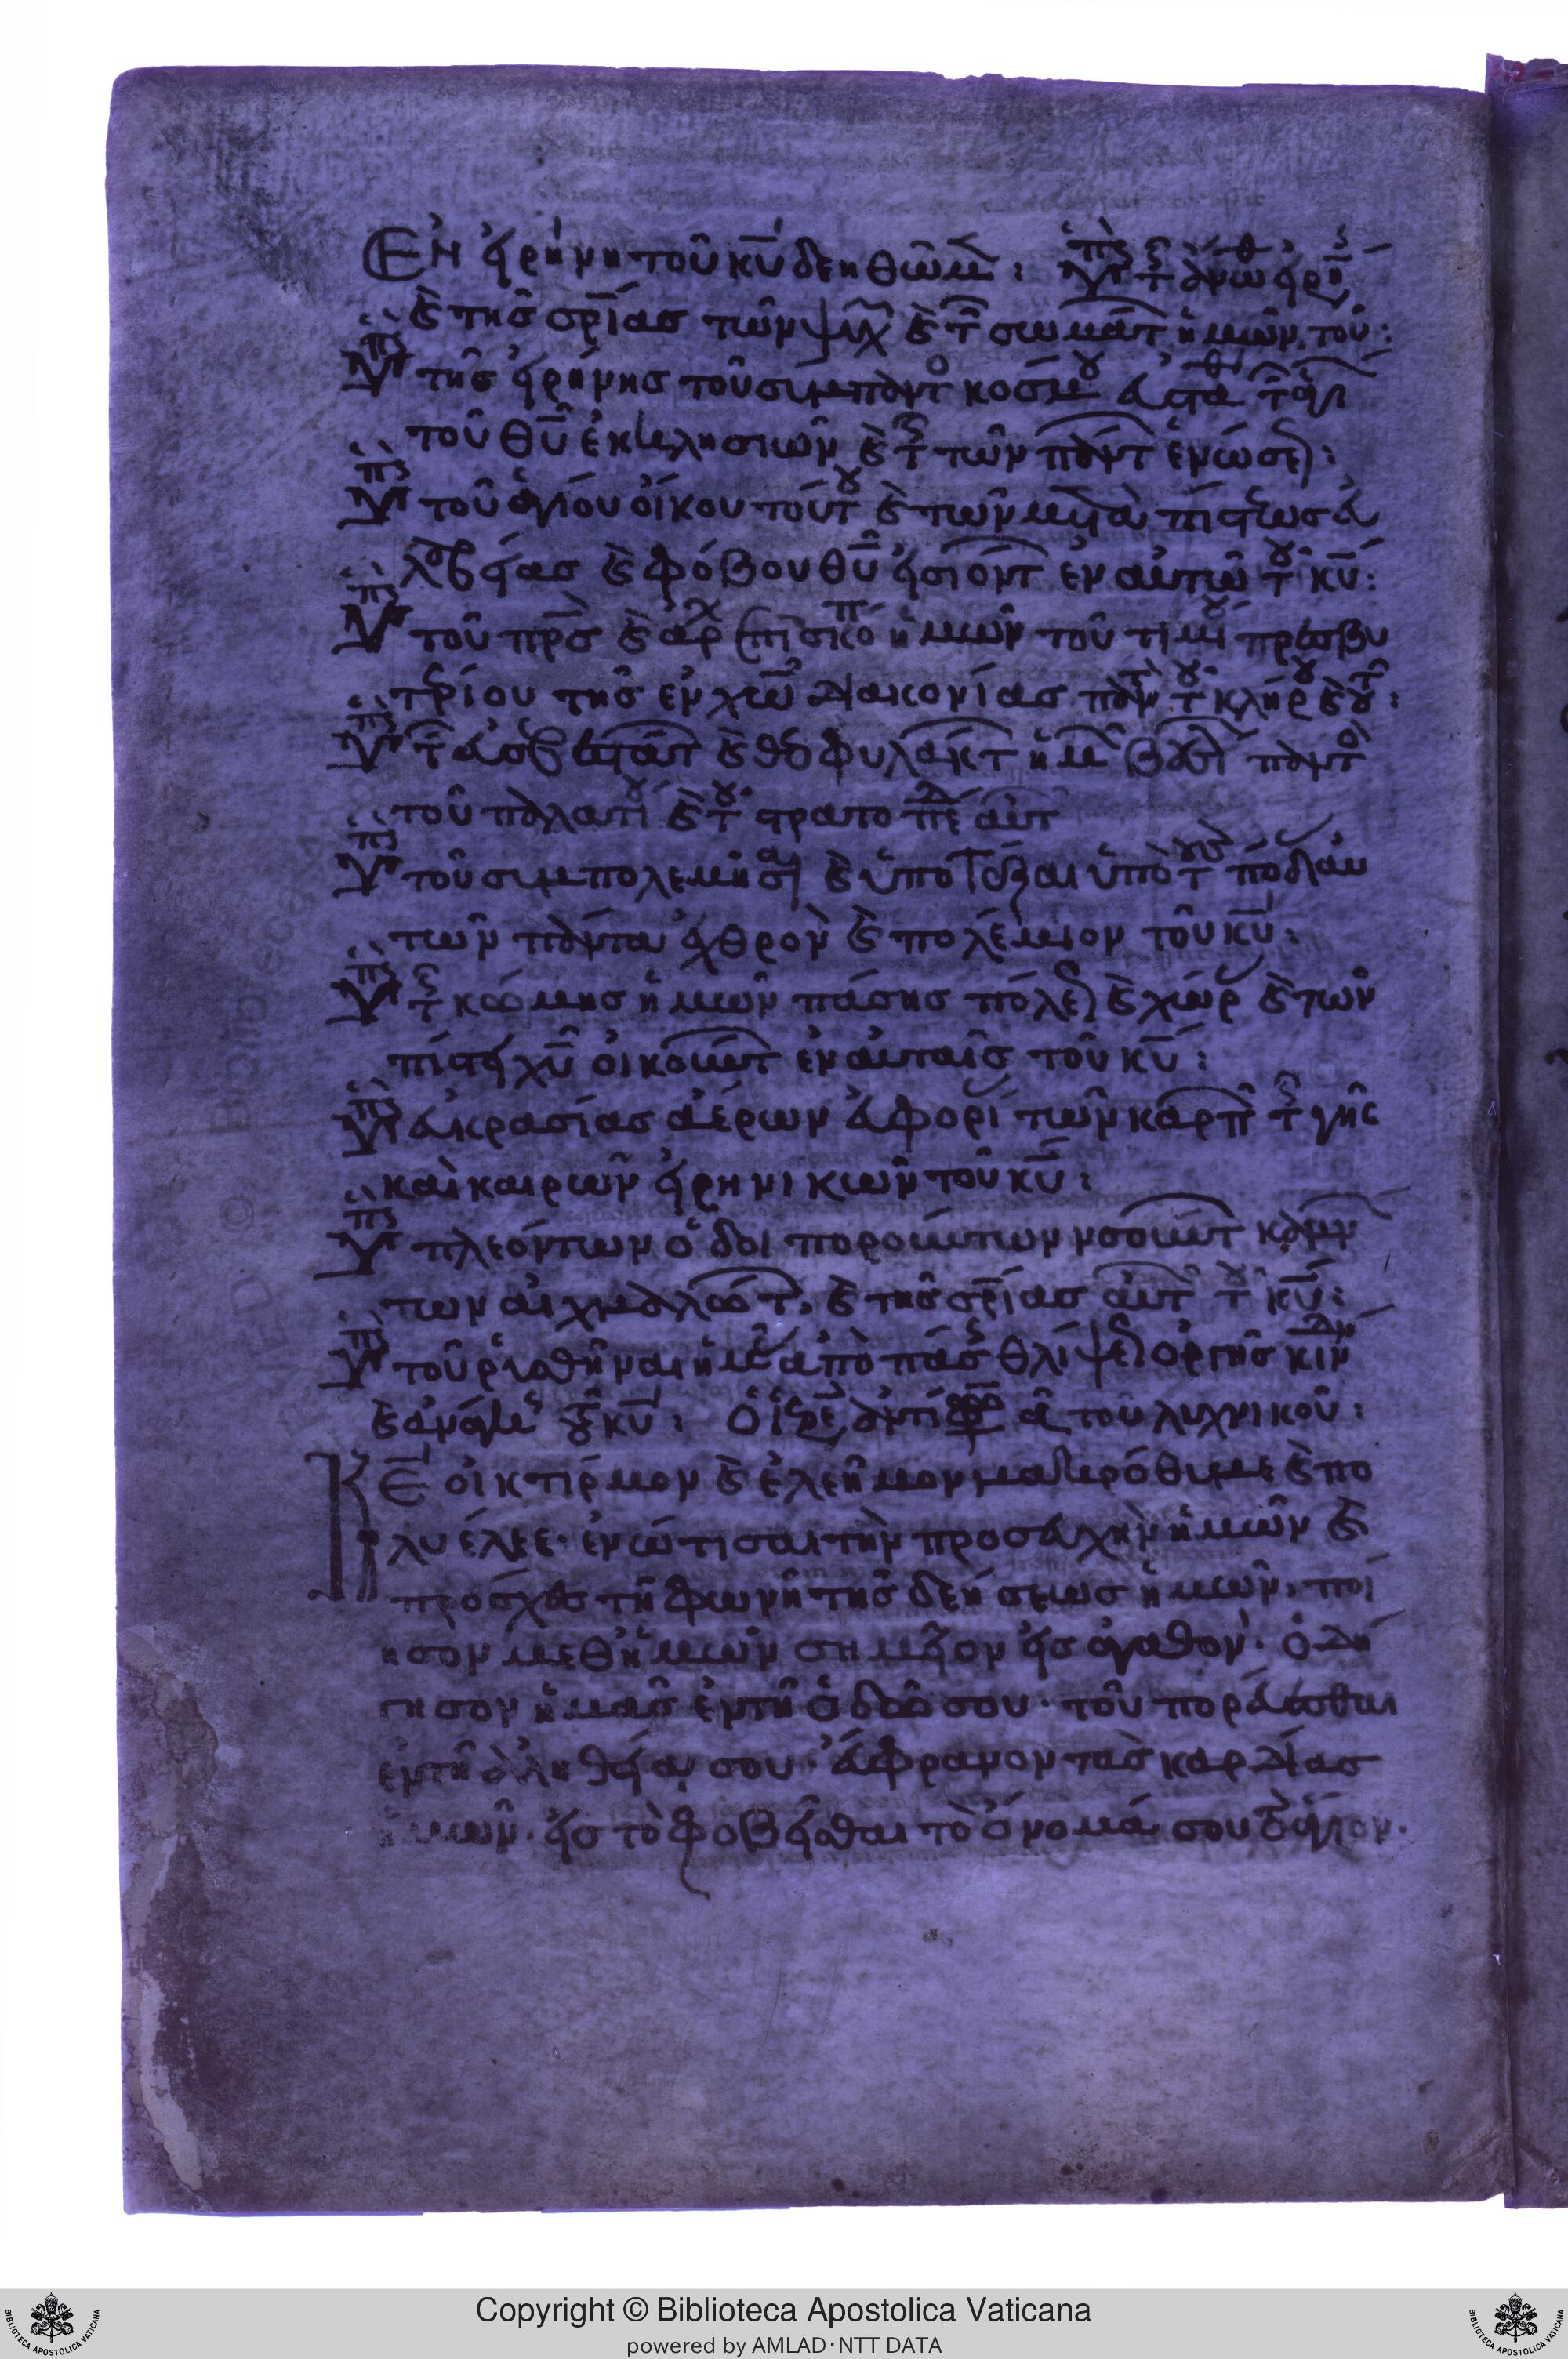 Ἐν εἰρήνη τοῦ κυ δεηθῶμ : Ὑπ τ ἄνωθ εἰρή
καὶ τῆς σρίας τῶν ψυχ καὶ τ σωμάτ ἡμῶν. τοῦ :
Ὑπ τῆς εἰρήνης τοῦ σύμπαντ κόσμου εὐσταθ τ ἁγι
τοῦ θυ ἐκκλησιῶν καὶ τ τῶν πάντ ἑνώσε :
Ὑπ τοῦ ἁγίου οἴκου τούτου καὶ τῶν μετὰ πίστεως εὐ
λαβείας καὶ φόβου θυ εἰσιόντ ἐν αὐτῶ τ κυ :
Ὑπ τοῦ πρς καὶ ἀρχ ἐπισκόπ ἡμῶν τοῦ τιμί πρεσβυ
τρίου τῆς ἐν χω διακονίας παντ τ κλήρου καὶ τ :
Ὑπ τ εὐσεβεστάτ καὶ θεοφυλάκτ ἡμ βασιλ παντ
τοῦ παλατί καὶ τ στρατοπέδ αὐτ
Ὑπ τοῦ συμπολεμῆσαι καὶ ὑποτάξαι ὑπὸ τ πόδ αὐ
τῶν πάντα ἐχθρὸν καὶ πολέμιον τοῦ κυ :
Ὑπ τ κώμης ἡμῶν πάσης πόλε καὶ χώρ καὶ τῶν
πίστει χυ οἰκούντ ἐν αὐταῖς τοῦ κυ :
Ὑπ εὐκρασίας ἀέρων εὐφορί τῶν καρπ τ γῆς
καὶ καιρῶν εἰρηνικῶν τοῦ κυ :
Ὑπ πλεόντων ὁδοιπορούντων νοσούντ καμν
των αἰχμαλώτ. καὶ τῆς σρίας αὐτ τ κυ :
Ὑπ τοῦ ῥυσθῆναι ἡμ ἀπὸ πάσ θλίψε ὀργῆς κινδ
καὶ ἀνάγκ τ κυ : ἀντιφ α τοῦ λυχνικοῦ :
Κε οἰκτίρμον καὶ ἐλεῆμον μακρόθυμε καὶ πο
λυέλεε· ἐνώτισαι τὴν προσευχὴν ἡμῶν καὶ
πρόσχες τῆ φωνῆ τῆς δεήσεως ἡμῶν, ποί
ησον μεθ ἡμῶν σημεῖον εἰς ἀγαθόν· ὁδή
γησον ἡμᾶς ἐν τῆ ὁδῶ σου· τοῦ πορεύεσθαι
ἐν τῆ ἀληθεία σου· εὔφρανον τὰς καρδίας
ἡμῶν· εἰς τὸ φοβεῖσθαι τὸ ὄνομά σου τὸ ἅγιον·
Copyright © Biblioteca Apostolica Vaticana
powered by AMLAD·NTT DATA
BIBLIOTECA APOSTOLICA VATICANA
BIBLIOTECA APOSTOLICA VATICANA